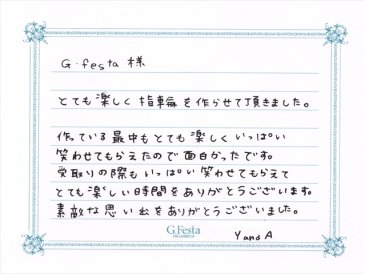 G.festa 様
とても楽しく指輪を作らせて頂きました。
作っている最中もとても楽しくいっぱい
笑わせてもらえたので面白かったです。
受取りの際もいっぱい笑わせてもらえて
とても楽しい時間をありがとうございます。
素敵な思い出をありがとうございました。
G.Festa
Y and A